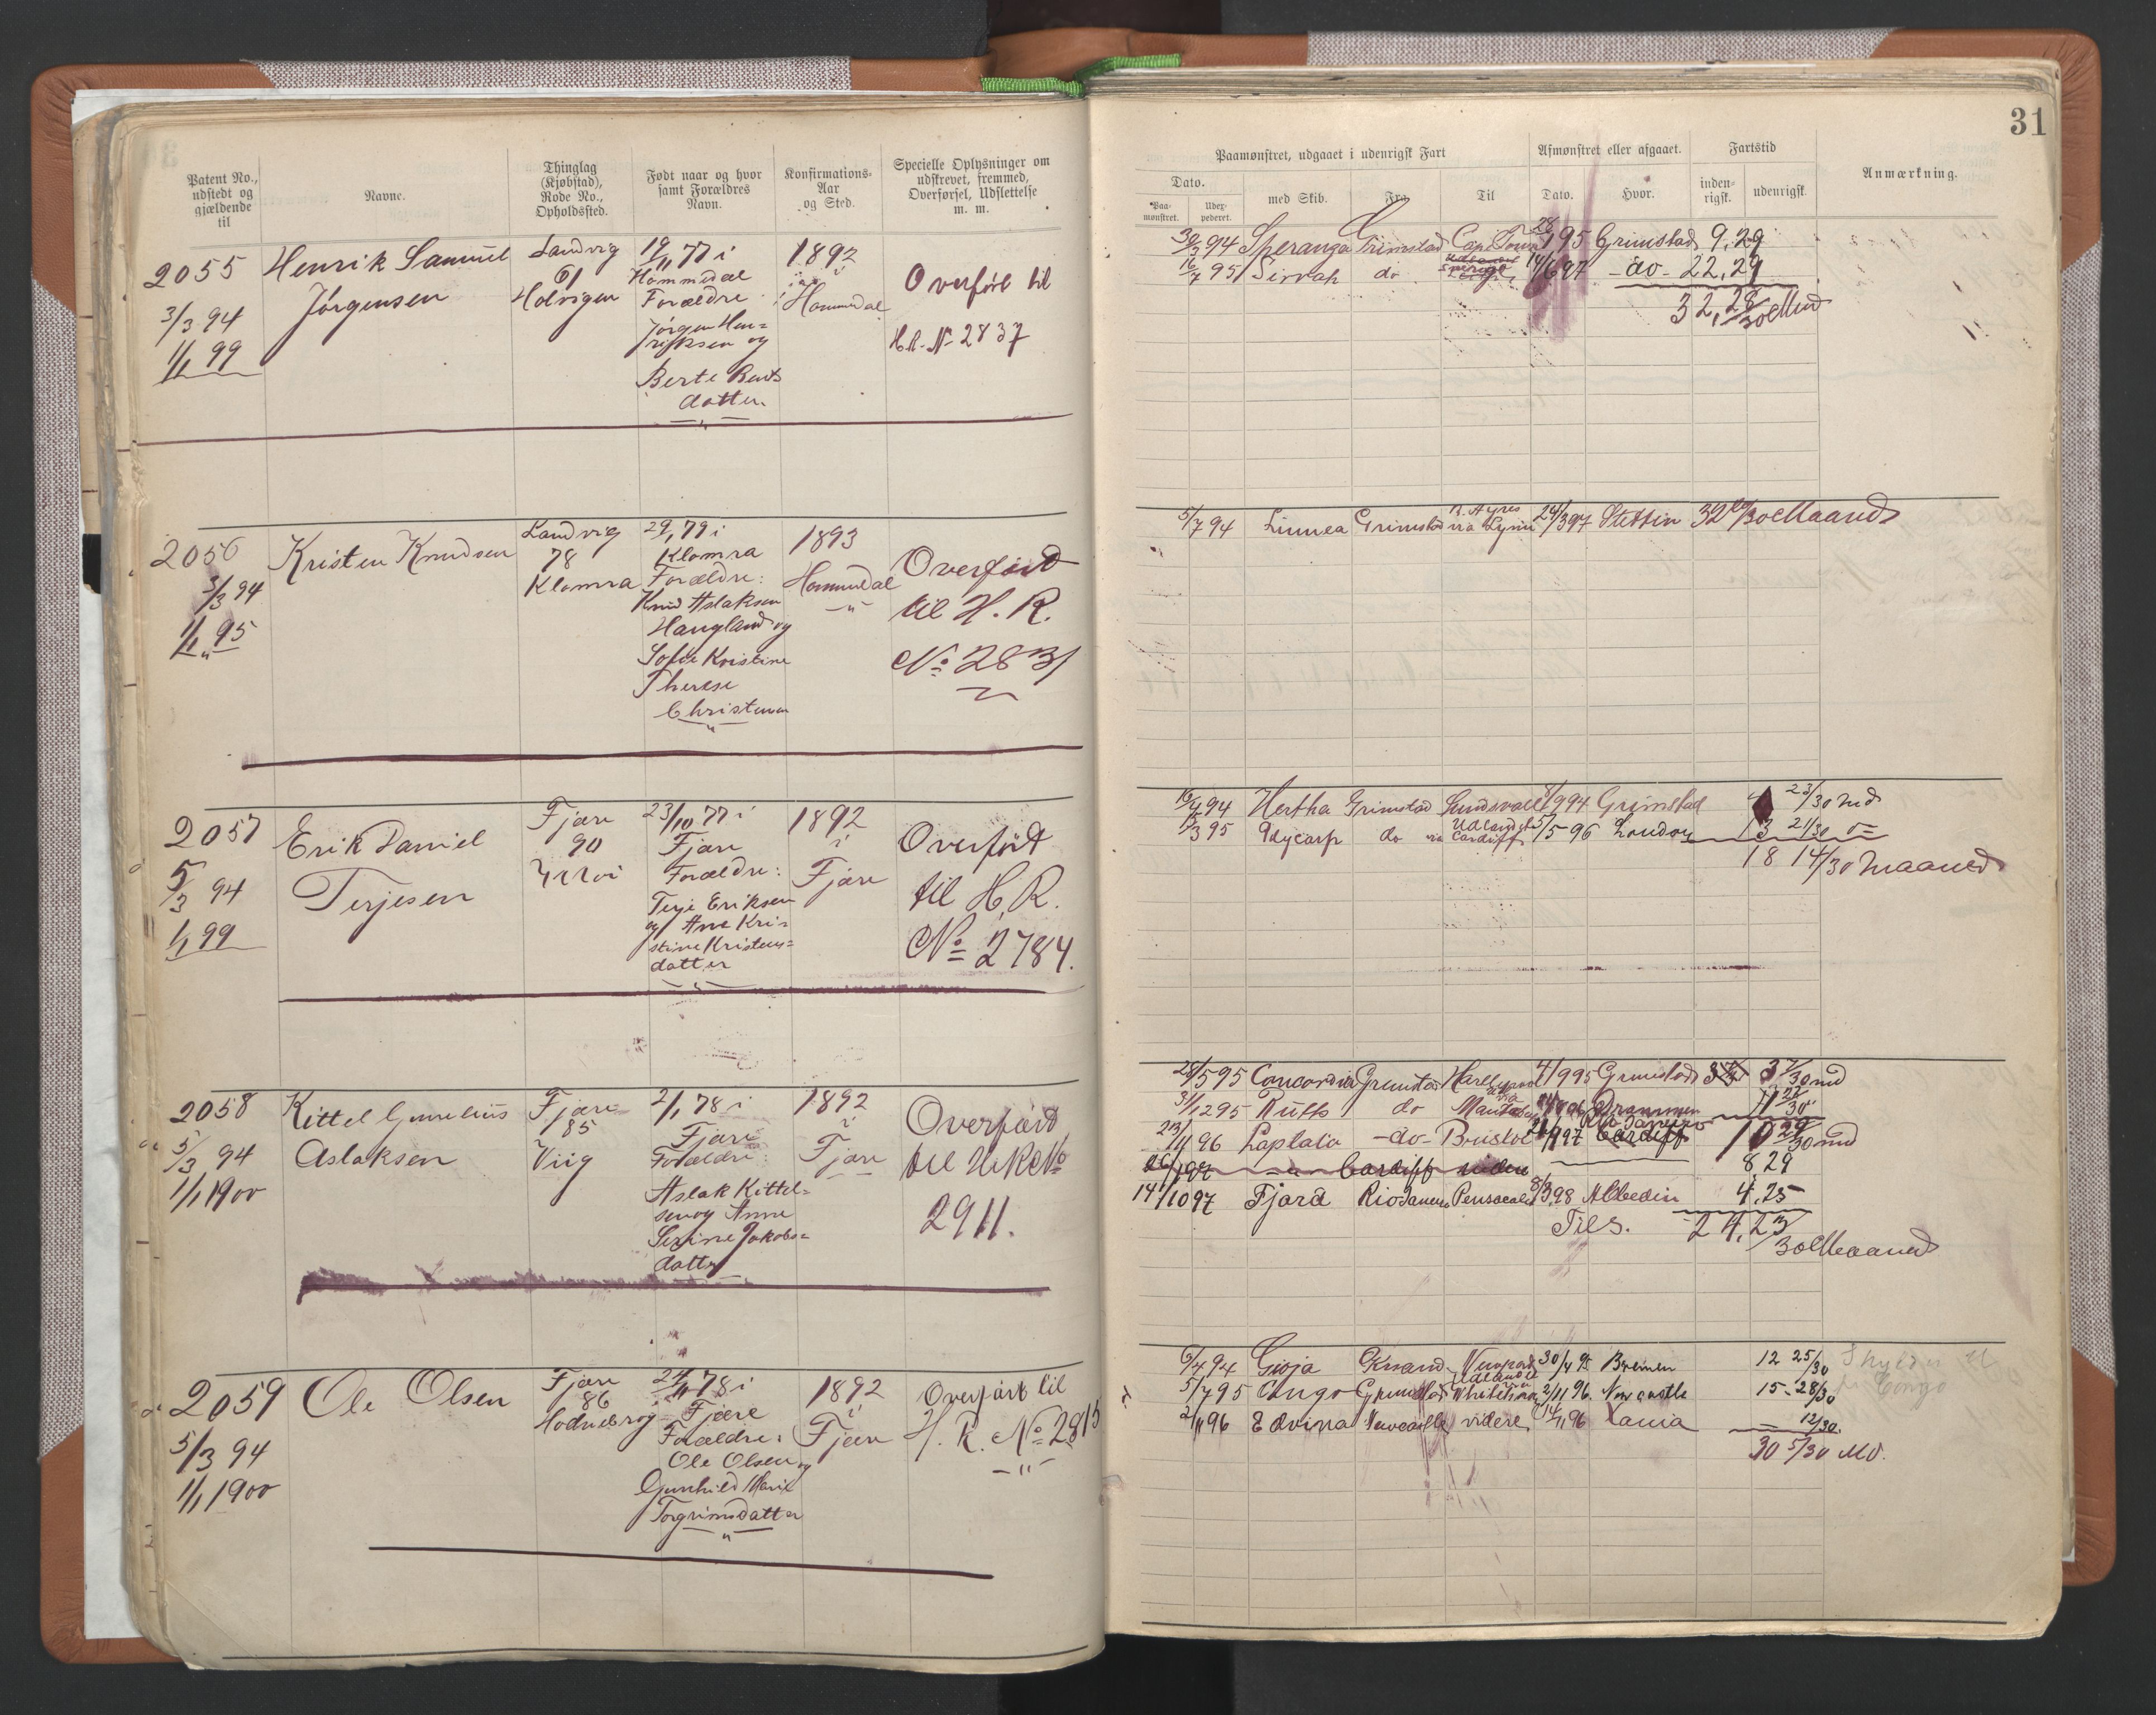 31
Patent No., udstedt og gjældende til
Navne.
Thinglag (Kjøbstad), Rode No., Opholdssted.
Født naar og hvor samt Forældres Navn.
Konfirmations-Aar og Sted.
Specielle Oplysninger om udskrevet, fremmed, Overførsel, Udslettelse m. m.
Paamønstret, udgaaet i udenrigsk Fart
Afmønstret eller afgaaet.
Fartstid
Anmærkning.
Dato.
Paa-mønstret.
Udex-pederet.
med Skib.
Fra
Til
Dato.
Hvor.
inden-rigsk.
udenrigsk.
2055
3/3 94
1/1 99
Henrik Samuel
Jörgensen
Landvig
61
Holvigen
19/11 77 i
Hommedal
Forældre
Jörgen Hen=
riksen og
Berte Bents
datter
1892
i
Hommedal
Overfört til
H.R. No 2837
30/3 94 Speranza Grimstad Cape Town 28/1 95 Grimstad 9,29
16/7 95 Sirrah do 14/6 97 -do- 22,29
32,28/30 Mnd
2056
3/3 94
1/1 95
Kristen Knudsen
Landvig
78
Klomra
29/1 79 i
Klomra
Forældre:
Knud Aslaksen
Haugland og
Sofie Kristine
Therese
Christensen
1893
Hommedal
Overförd
til H. R.
No 2831
5/7 94 Linnea Grimstad B. Ayres via Lynn 24/3 97 Stettin 32 20/30 Maaned
2057
5/3 94
1/1 99
Erik Daniel
Terjesen
Fjære
90
23/10 77 i
Fjære
Forældre:
Terje Eriksen
og Ane Kri=
stine Kristens=
datter
1892
i
Fjære
Overfört
til H. R.
No 2784.
16/4 94 Hertha Grimstad Sundsvall 9/9 94 Grimstad 4 23/30 Md
15/3 95 Polycarp do Udlandet via Cardiff 5/5 96 London 13 21/30 "
18 14/30 Maaned
2058
5/3 94
1/1 1900
Kittel Cornelius
Aslaksen
Fjære
85
Viig
2/1 78 i
Fjære
Forældre:
Aslak Kittel=
sen og Anne
Serine Jakobs=
datter
1892
i
Fjære
Overförd
til H. R. No
2911.
28/5 95 Concordia Grimstad Hartlepool 4/9 95 Grimstad 3 7/30 md
31/12 95 Rufts do Drammen
23/11 96 Laplata -do- Bristol Rio Janeiro Cardiff 10 29/30 md
Cardiff viden 8,29
14/10 97 Fjard Rio Janeiro Pensacola 8/3 98 Aberdin 4,25
Tils. 24,23/30 Maaned
2059
5/3 94
1/1 1900
Ole Olsen
Fjære
86
Hodnebrog
24/11 78 i
Fjære
Forældre:
Ole Olsen og
Gunhild Marie
Torgrimsdatter
1892
i
Fjære
Overfört til
H. R. No 2815
6/4 94 Gioja Newport 30/4 95 Bremen 12 25/30
5/7 95 Congo Grimstad Udlandet via 2/11 96. Newcastle 15-28/30
2/11 96 Edvina Newcastle videre 14/11 96 Lania 12/30.
30 5/30 Md.
Congo